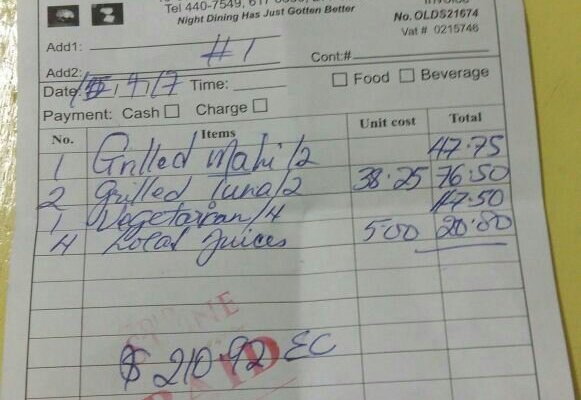 Tel 440-7549,
Night Dining Has Just Gotten Better
Invoice
No. OLDS21674
Vat # 0215746
Add1: #1
Add2: Cont:#
Date: / 4 / 7 Time: Food Beverage
Payment: Cash Charge
No. Items Unit cost Total
1 Grilled Mahi/2 47.75
2 Grilled Tuna/2 38.25 76.50
1 Vegetarian/4 47.50
4 Local Juices 5.00 20.00
$ 210.92 EC
PAID